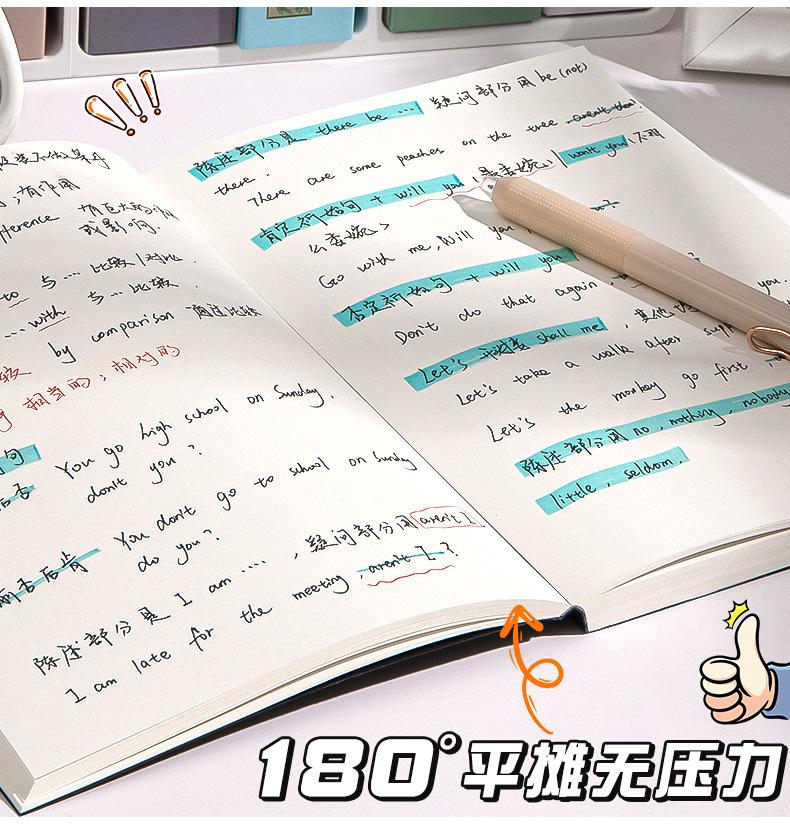 有作用
有巨大的
或影响.
to 与.... 比较 | 对比
...with 与... 比较.
by comparison 通过比较
相当的；相对的
You go high school on Sunday,
don't you?
You don't go to school on Sunday
do you?
前否后肯
陈述部分是 I am ...., 疑问部分用 aren't I
I am late for the meeting, aren't I ?
陈述部分是 there be ... 疑问部分用 be (not)
there.
There are some peaches on the tree aren't there
肯定祈使句 + will you (最委婉) | won't you (不那
么委婉)
Go with me, Will you
否定祈使句 + will you
Don't do that again,
Let's 开头 shall me, 其他
Let's take a walk after you.
Let's the monkey go first
陈述部分用 no, nothing, nobody
little, seldom.
180°平摊无压力